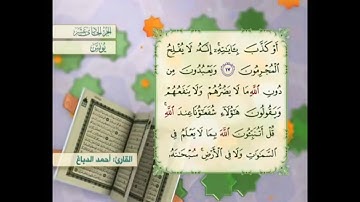 الجزء الحادي عشر
يونس
أَوْ كَذَّبَ بِـَٔايَـٰتِهِۦٓ إِنَّهُۥ لَا يُفْلِحُ
ٱلْمُجْرِمُونَ ١٧ وَيَعْبُدُونَ مِن
دُونِ ٱللَّهِ مَا لَا يَضُرُّهُمْ وَلَا يَنفَعُهُمْ
وَيَقُولُونَ هَـٰٓؤُلَآءِ شُفَعَـٰٓؤُنَا عِندَ ٱللَّهِ ۚ
قُلْ أَتُنَبِّـُٔونَ ٱللَّهَ بِمَا لَا يَعْلَمُ فِى
ٱلسَّمَـٰوَٰتِ وَلَا فِى ٱلْأَرْضِ ۚ سُبْحَـٰنَهُۥ
القارئ: أحمد الدباغ